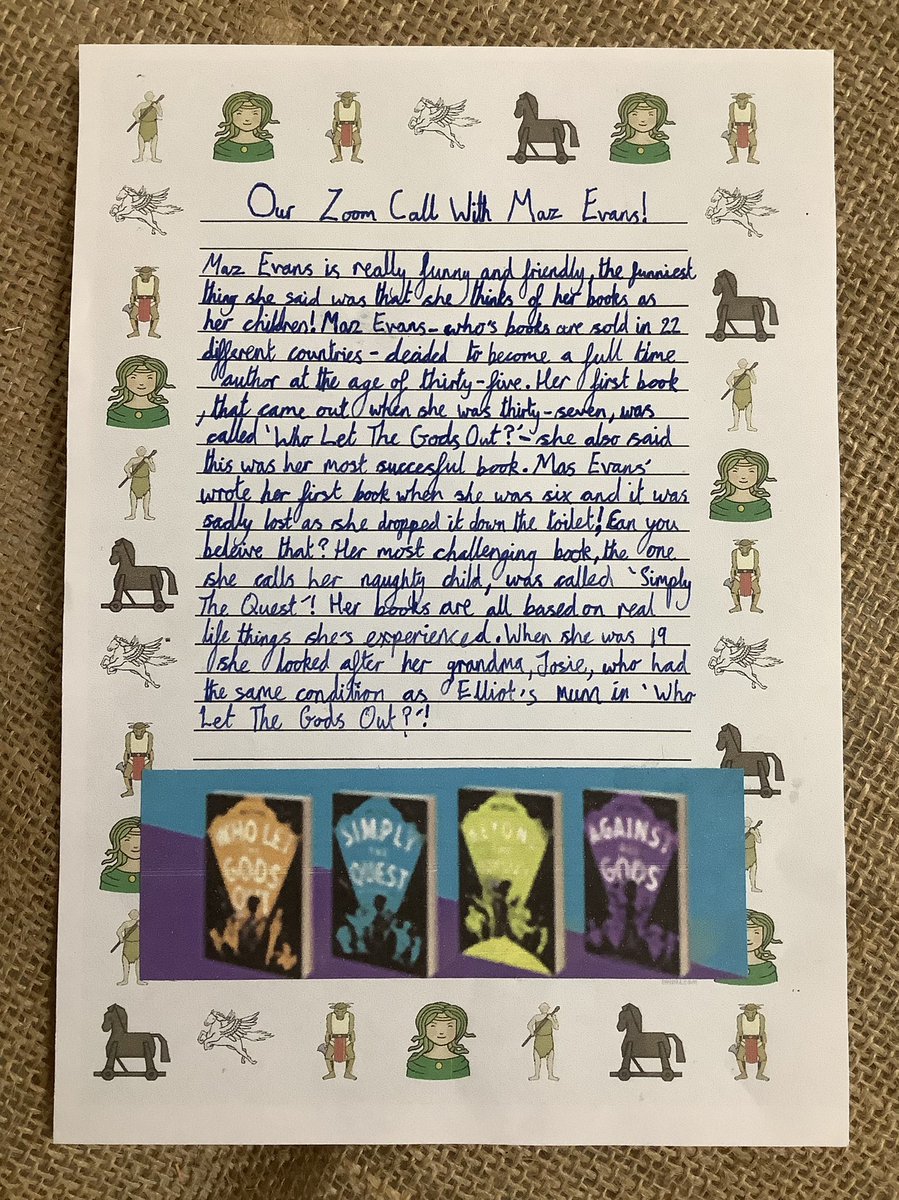 Our Zoom Call With Maz Evans!
Maz Evans is really funny and friendly, the funniest
thing she said was that she thinks of her books as
her children! Maz Evans - who's books are sold in 22
different countries - decided to become a full time
author at the age of thirty-five. Her first book
, that came out when she was thirty-seven, was
called 'Who Let The Gods Out?' - she also said
this was her most succesful book. Mas Evans'
wrote her first book when she was six and it was
sadly lost as she dropped it down the toilet! Can you
beleive that? Her most challenging book, the one
she calls her naughty child, was called 'Simply
The Quest'! Her books are all based on real
life things she's experienced. When she was 19
she looked after her grandma, Josie, who had
the same condition as Elliot's mum in 'Who
Let The Gods Out?'!
WHO LET
GODS
OUT
SIMPLY
THE
QUEST
BEYOND
AGAINST
GODS